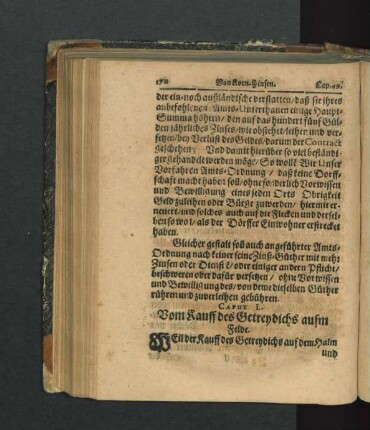 170 Von Korn-Zinsen. Cap. 49.
der ein-noch außländische verstatten/ daß sie ihres
anbefohlenen Amts-Unterthanen einige Haupt-
Summa höhern/ den auf das hundert fünf Gül-
den jährliches Zinses/ wie obstehet/ leihen und ver-
setzen/ bey Verlust des Geldes/ darum der Contract
geschehen; Und damit hierüber so viel beständi-
ger gehandelt werden möge/ So wolln Wir Unser
Vorfahren Amts-Ordnung/ daß keine Dorff-
schafft macht haben soll/ ohne sonderlich Vorwissen
und Bewilligung eines jeden Orts Obrigkeit
Geld zuleihen oder Bürge zuwerden/ hiermit er-
neuert/ und solches auch auf die Flecken und dersel-
ben so wol/ als der Dörffer Einwohner erstrecket
haben.
Gleicher gestalt soll auch angeführter Amts-
Ordnung nach keiner seine Zinß-Güther mit mehr
Zinsen oder Dienst/ oder einiger andern Pflicht/
beschweren oder dafür versetzen/ ohne Vorwissen
und Bewilligung des/ von deme dieselben Güther
rühren und zuverleihen gebühren.
CAPUT L.
Vom Kauff des Getreydichs aufm
Felde.
WEil der Kauff des Getreydichs auf dem Halm
und